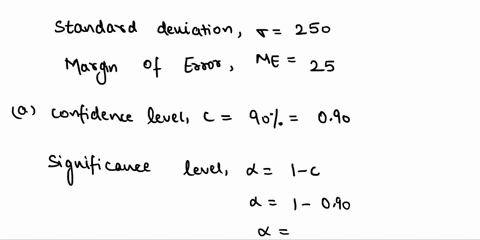 Standard deviation, σ = 250
Margin of Error, ME = 25
(a) Confidence level, C = 90% = 0.90
Significance level, α = 1-C
α = 1 - 0.90
α =